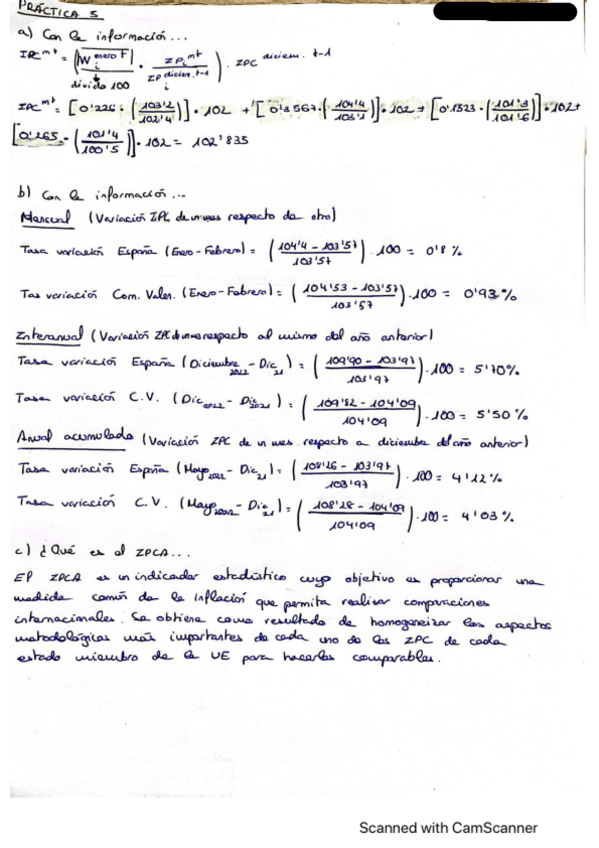 PRÁCTICA 5
a) Con la información...
IPC^mt = (W_i^enero t / divido 100 · IP_i^mt / IP_i^diciem. t-1) · IPC^diciem. t-1
IPC^mt = [0'226 · (103'2 / 102'4)] · 102 + [0'3567 · (104'4 / 103'1)] · 102 + [0'1523 · (101'3 / 101'6)] · 102 +
[0'265 · (101'4 / 100'5)] · 102 = 102'835
b) Con la información...
Mensual (Variación IPC de un mes respecto de otro)
Tasa variación España (Enero - Febrero) = (104'4 - 103'57 / 103'57) · 100 = 0'8 %
Tas variación Com. Valen. (Enero - Febrero) = (104'53 - 103'57 / 103'57) · 100 = 0'93 %
Interanual (Variación IPC de un mes respecto al mismo del año anterior)
Tasa variación España (Diciembre 2022 - Dic 21) = (109'90 - 103'97 / 103'97) · 100 = 5'70%
Tasa variación C.V. (Dic 2022 - Dic 2021) = (109'82 - 104'09 / 104'09) · 100 = 5'50 %
Anual acumulada (Variación IPC de un mes respecto a diciembre del año anterior)
Tasa variación España (Mayo 2022 - Dic 21) = (108'26 - 103'97 / 103'97) · 100 = 4'12 %
Tasa variación C.V. (Mayo 2022 - Dic 21) = (108'28 - 104'09 / 104'09) · 100 = 4'03 %
c) ¿Qué es el IPCA...
El IPCA es un indicador estadístico cuyo objetivo es proporcionar una
medida común de la inflación que permita realizar comparaciones
internacionales. Se obtiene como resultado de homogeneizar los aspectos
metodológicos más importantes de cada uno de los IPC de cada
estado miembro de la UE para hacerlos comparables.
Scanned with CamScanner